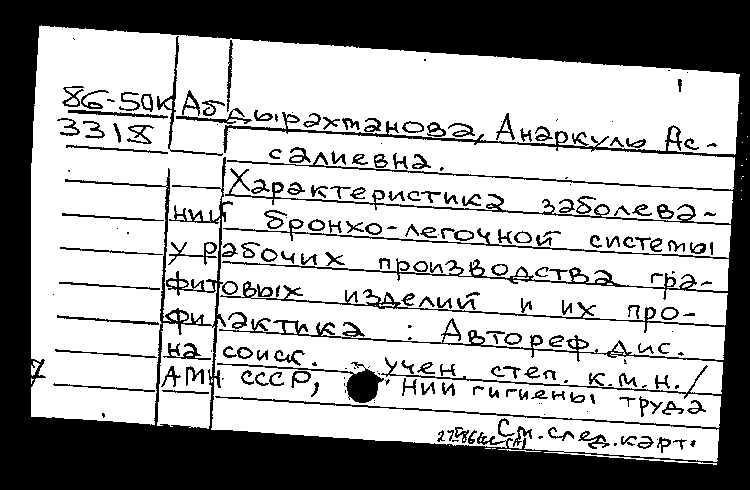 86-50К Абдырахманова, Анаркуль Ас-
3318 салиевна.
Характеристика заболева-
ний бронхо-легочной системы
у рабочих производства гра-
фитовых изделий и их про-
филактика : Автореф. дис.
на соиск. учен. степ. к.м.н./
АМН СССР, НИИ гигиены труда
См. след. карт.